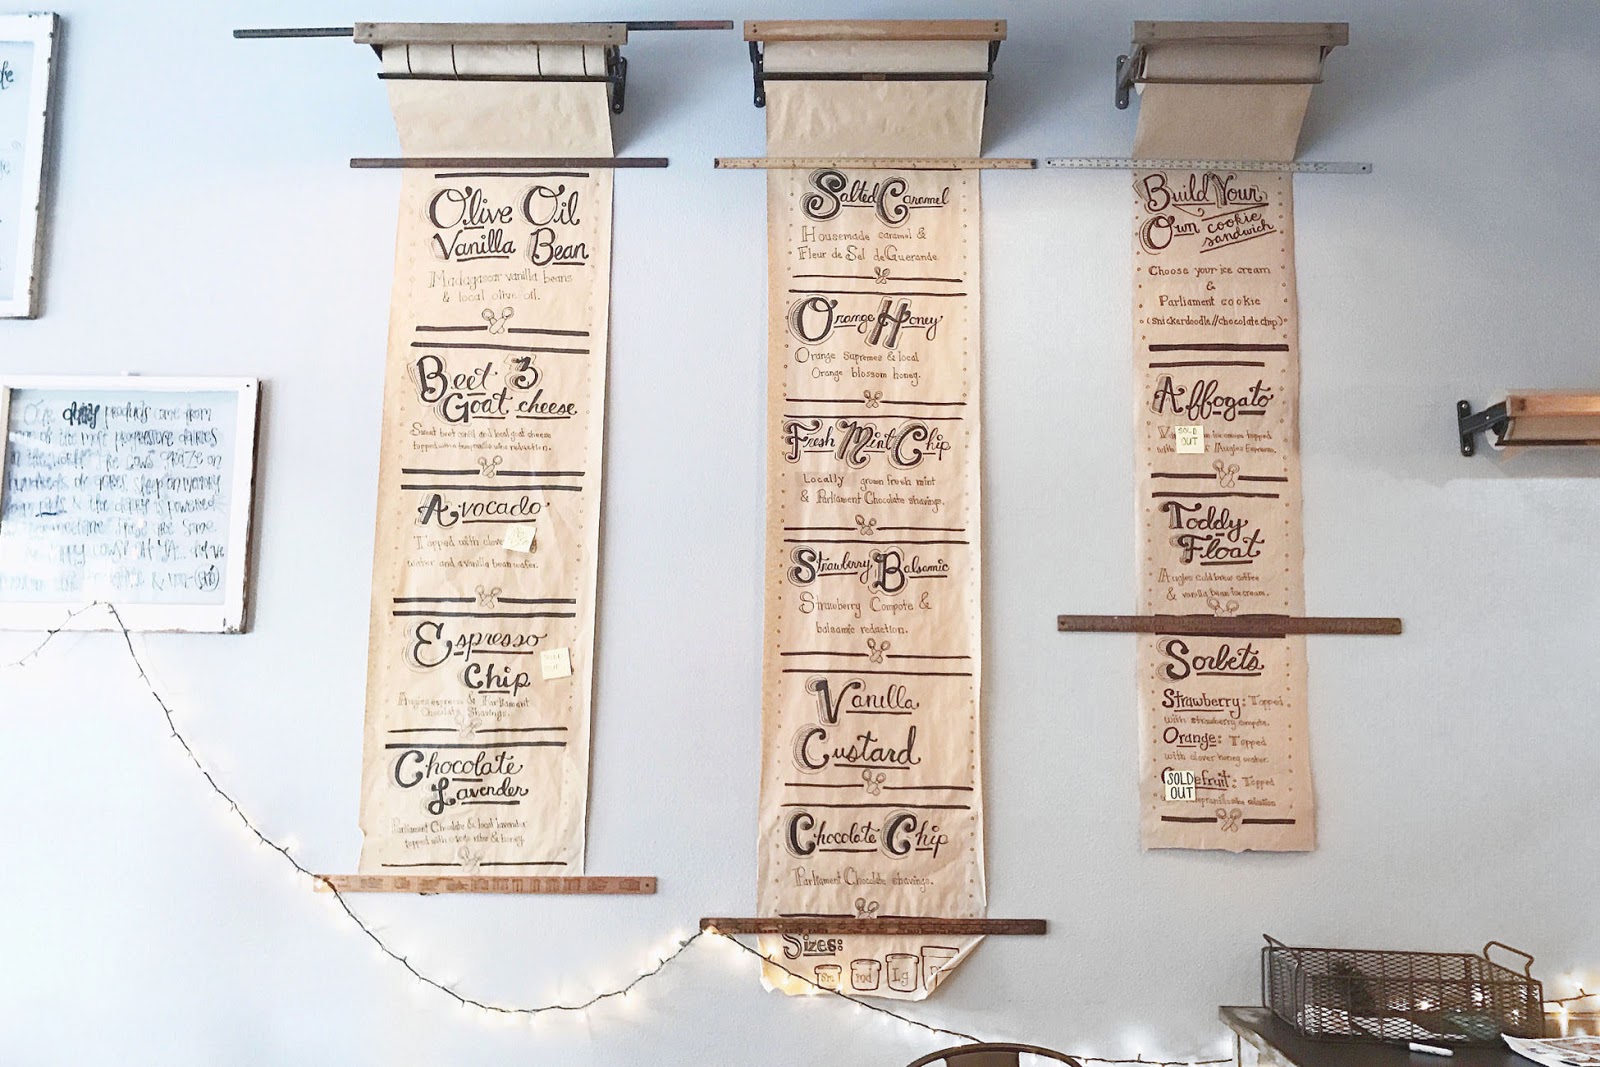 Olive Oil
Vanilla Bean
Madagascar vanilla beans
& local olive oil.
Beet &
Goat cheese
Sweet beet and local goat cheese
topped with a
reduction.
Avocado
Topped with clover
water and a vanilla bean wafer.
Espresso
Chip
SOLD
OUT
Augies espresso & Parliament
Chocolate Shavings.
Chocolate
Lavender
Parliament Chocolate & local lavender
topped with & honey.
Salted Caramel
Housemade caramel &
Fleur de Sel de Guerande.
Orange Honey
Orange Supremes & local
Orange blossom honey.
Fresh Mint Chip
Locally grown fresh mint
& Parliament Chocolate shavings.
Strawberry Balsamic
Strawberry Compote &
balsamic reduction.
Vanilla
Custard
Chocolate Chip
Parliament Chocolate shavings.
Sizes:
sm med Lg
Build Your
Own cookie
sandwich
Choose your ice cream
&
Parliament cookie
(snickerdoodle//chocolate chip)
Affogato
SOLD
OUT
ice cream topped
with & Augies Espresso.
Toddy
Float
Augies cold brew coffee
& vanilla bean ice cream.
Sorbets
Strawberry: Topped
with strawberry compote.
Orange: Topped
with clover honey water.
efruit: Topped
SOLD
OUT
Our dairy products come from
of the most progressive dairies
in the world. The cows graze on
hundreds of acres, sleep on
& the dairy is powered